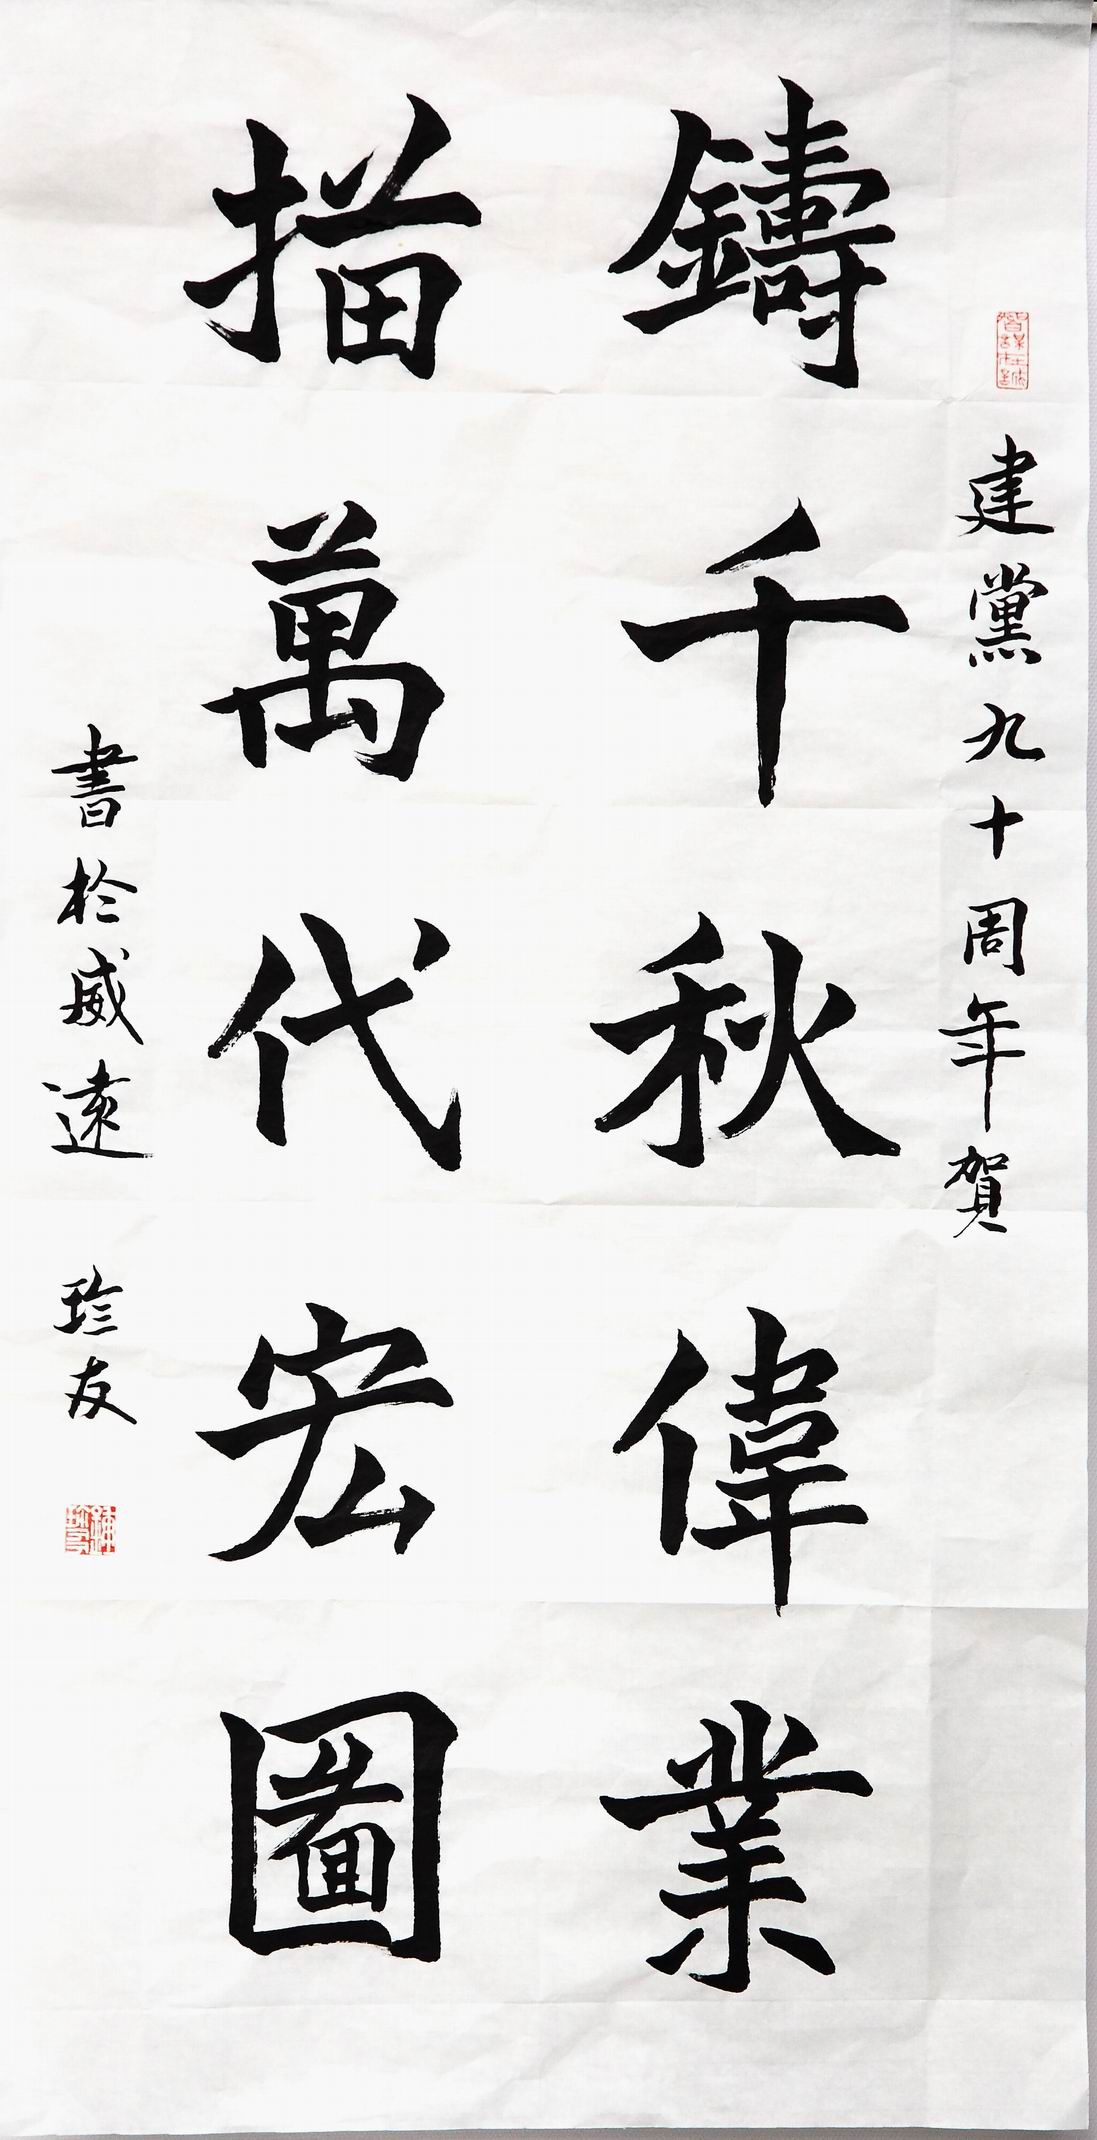 建黨九十周年賀
鑄千秋偉業
描萬代宏圖
書於威遠 珍友